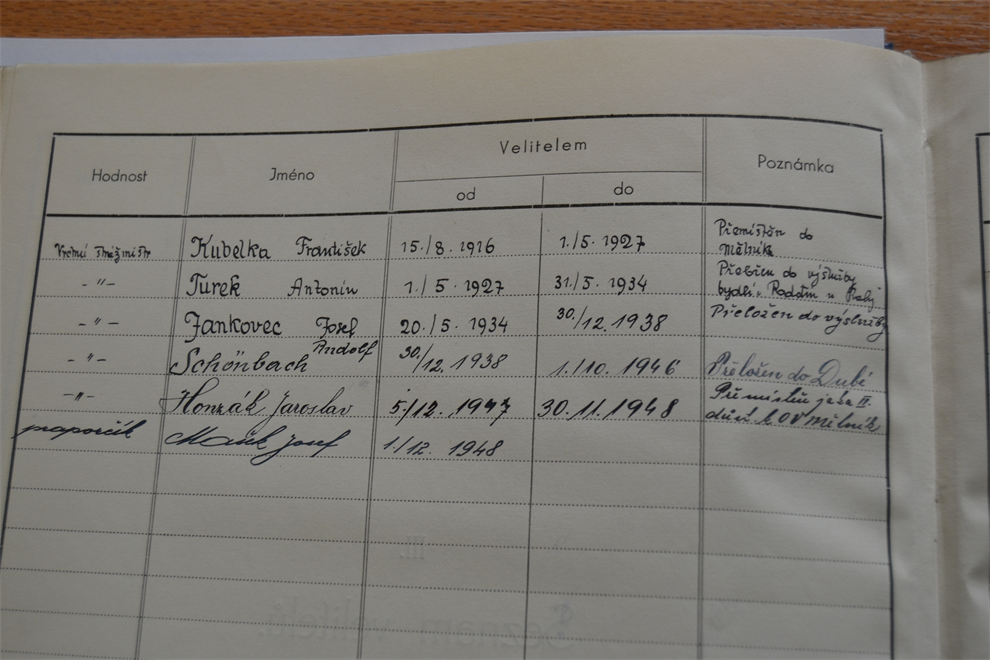 Hodnost Jméno Velitelem Poznámka
od do
Vrchní strážmistr Kubelka František 15./8. 1916 1./5. 1927 Přemístěn do
Mělníka
-"- Turek Antonín 1./5. 1927 31./5. 1934 Přeložen do výslužby
bydlí v
-"- Jankovec Josef 20./5. 1934 30./12. 1938 Přeložen do výslužby
-"- Schönbach Rudolf 30./12. 1938 1./10. 1946 Přeložen do Dubé
-"- Honzák Jaroslav 5./12. 1947 30.11.1948 Přemístěn jako II.
důst. k OV Mělník
praporčík Josef 1./12. 1948
III.
Seznam velitelů.